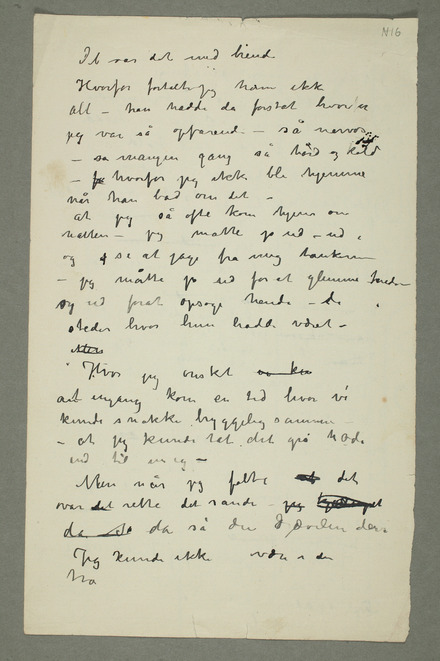 N16
det med
Hvorfor fortalte jeg ham ikke
alt – han hadde da forståt hvorfor
jeg var så opfarende – så nervøs
– så mangen gang så hård og kold
– hvorfor jeg ikke ble hjemme
når han bad om det –
at jeg så ofte kom hjem om
natten – jeg måtte jo ud – ud
og se at jage fra mig tankerne
– jeg måtte jo ud for at glemme
og ud forat opsøge hende – de
steder hvor hun hadde været –
Men
Hvor jeg ønsket
at engang kom en tid hvor vi
kunde snakke hyggelig sammen –
– at jeg kunde tat det
ind til mig –
Men når jeg følte at det
var det rette det sande – jeg
da da så du
Jeg kunde ikke være